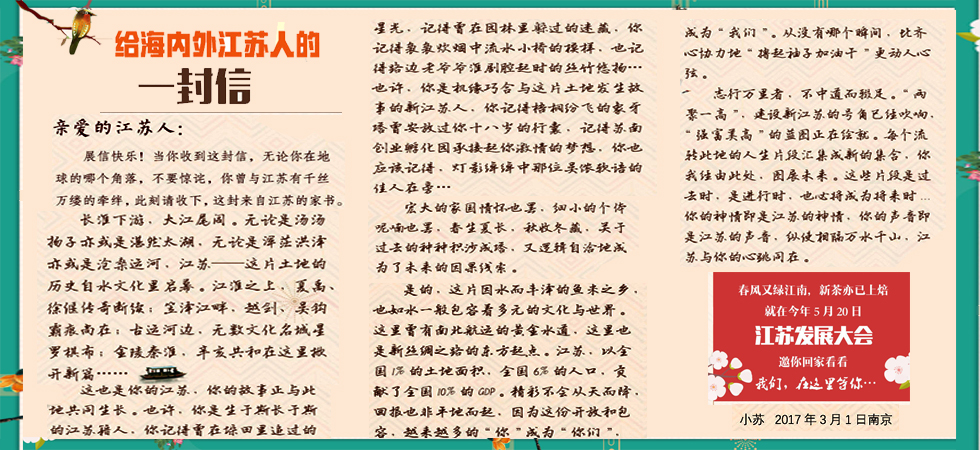 给海内外江苏人的
一封信
亲爱的江苏人：
展信快乐！当你收到这封信，无论你在地
球的哪个角落，不要惊诧，你曾与江苏有千丝
万缕的牵绊，此刻请收下，这封来自江苏的家书。
长淮下游，大江尾闾。无论是汤汤
扬子亦或是湛然太湖，无论是浑茫洪泽
亦或是沧桑运河，江苏——这片土地的
历史自水文化里启幕。江淮之上，夏禹、
徐偃传奇断续；笠泽江畔，越剑、吴钩
霸痕尚在；古运河边，无数文化名城星
罗棋布；金陵秦淮，辛亥共和在这里掀
开新篇……
这也是你的江苏，你的故事正与此
地共同生长。也许，你是生于斯长于斯
的江苏籍人，你记得曾在绿田里追过的
星光，记得曾在园林里躲过的迷藏，你
记得袅袅炊烟中流水小桥的模样，也记
得路边老爷爷淮剧腔起时的丝竹悠扬…
也许，你是机缘巧合与这片土地发生故
事的新江苏人，你记得梧桐纷飞的象牙
塔曾安放过你十八岁的行囊，记得苏南
创业孵化园承接起你激情的梦想，你也
应该记得，灯影绰绰中那位吴侬软语的
佳人在旁…
宏大的家国情怀也罢，细小的个体
呢喃也罢，春生夏长，秋收冬藏，关于
过去的种种积沙成塔，又逻辑自洽地成
为了未来的因果线索。
是的，这片因水而丰泽的鱼米之乡，
也如水一般包容着多元的文化与世界。
这里曾有南北航运的黄金水道，这里也
是新丝绸之路的东方起点。江苏，以全
国1%的土地面积，全国6%的人口，贡
献了全国10%的GDP。精彩不会从天而降，
回报也非平地而起，因为这份开放和包
容，越来越多的“你”成为“你们”，
成为“我们”。从没有哪个瞬间，比齐
心协力地“撸起袖子加油干”更动人心
弦。
志行万里者，不中道而辍足。“两
聚一高”，建设新江苏的号角已经吹响，
“强富美高”的蓝图正在绘就。每个流
转此地的人生片段汇集成新的集合，你
我经由此处，图展未来。这些片段是过
去时，是进行时，也必将成为将来时…
你的神情即是江苏的神情，你的声音即
是江苏的声音，纵使相隔万水千山，江
苏与你的心跳同在。
春风又绿江南，新茶亦已上焙
就在今年5月20日
江苏发展大会
邀你回家看看
我们，在这里等你…
小苏 2017年3月1日南京